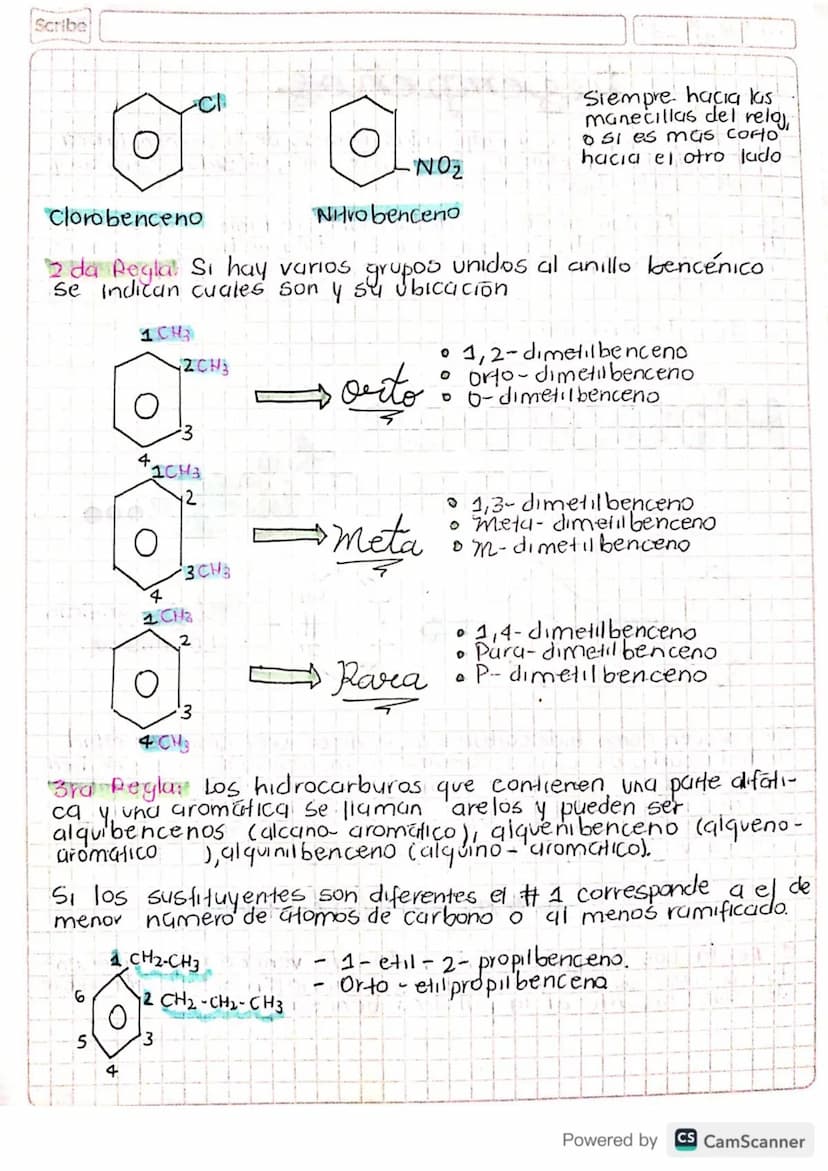 Scribe
Cl
Siempre hacia las
manecillas del reloj,
o si es mas corto
hacia el otro lado
NO2
Clorobenceno
Nitrobenceno
2da Regla: Si hay varios grupos unidos al anillo bencénico
se indican cuales son y su ubicación
1 CH3
2 CH3
3
4
orto
• 1,2-dimetilbenceno
• Orto-dimetilbenceno
• O-dimetilbenceno
1 CH3
2
3 CH3
4
Meta
• 1,3-dimetilbenceno
• Meta-dimetilbenceno
• m-dimetilbenceno
1 CH3
2
3
4 CH3
Para
• 1,4-dimetilbenceno
• Para-dimetilbenceno
• P-dimetilbenceno
3ra Regla: Los hidrocarburos que contienen una parte alifáti-
ca y una aromática se llaman arelos y pueden ser
alquibencenos (alcano-aromático), alquenibenceno (alqueno-
aromatico ), alquinilbenceno (alquino-aromatico).
Si los sustituyentes son diferentes el #1 corresponde a el de
menor número de átomos de carbono o al menos ramificado.
1 CH2-CH3
2 CH2-CH2-CH3
3
4
5
6
- 1-etil-2-propilbenceno.
- Orto-etilpropilbencena
Powered by CS CamScanner